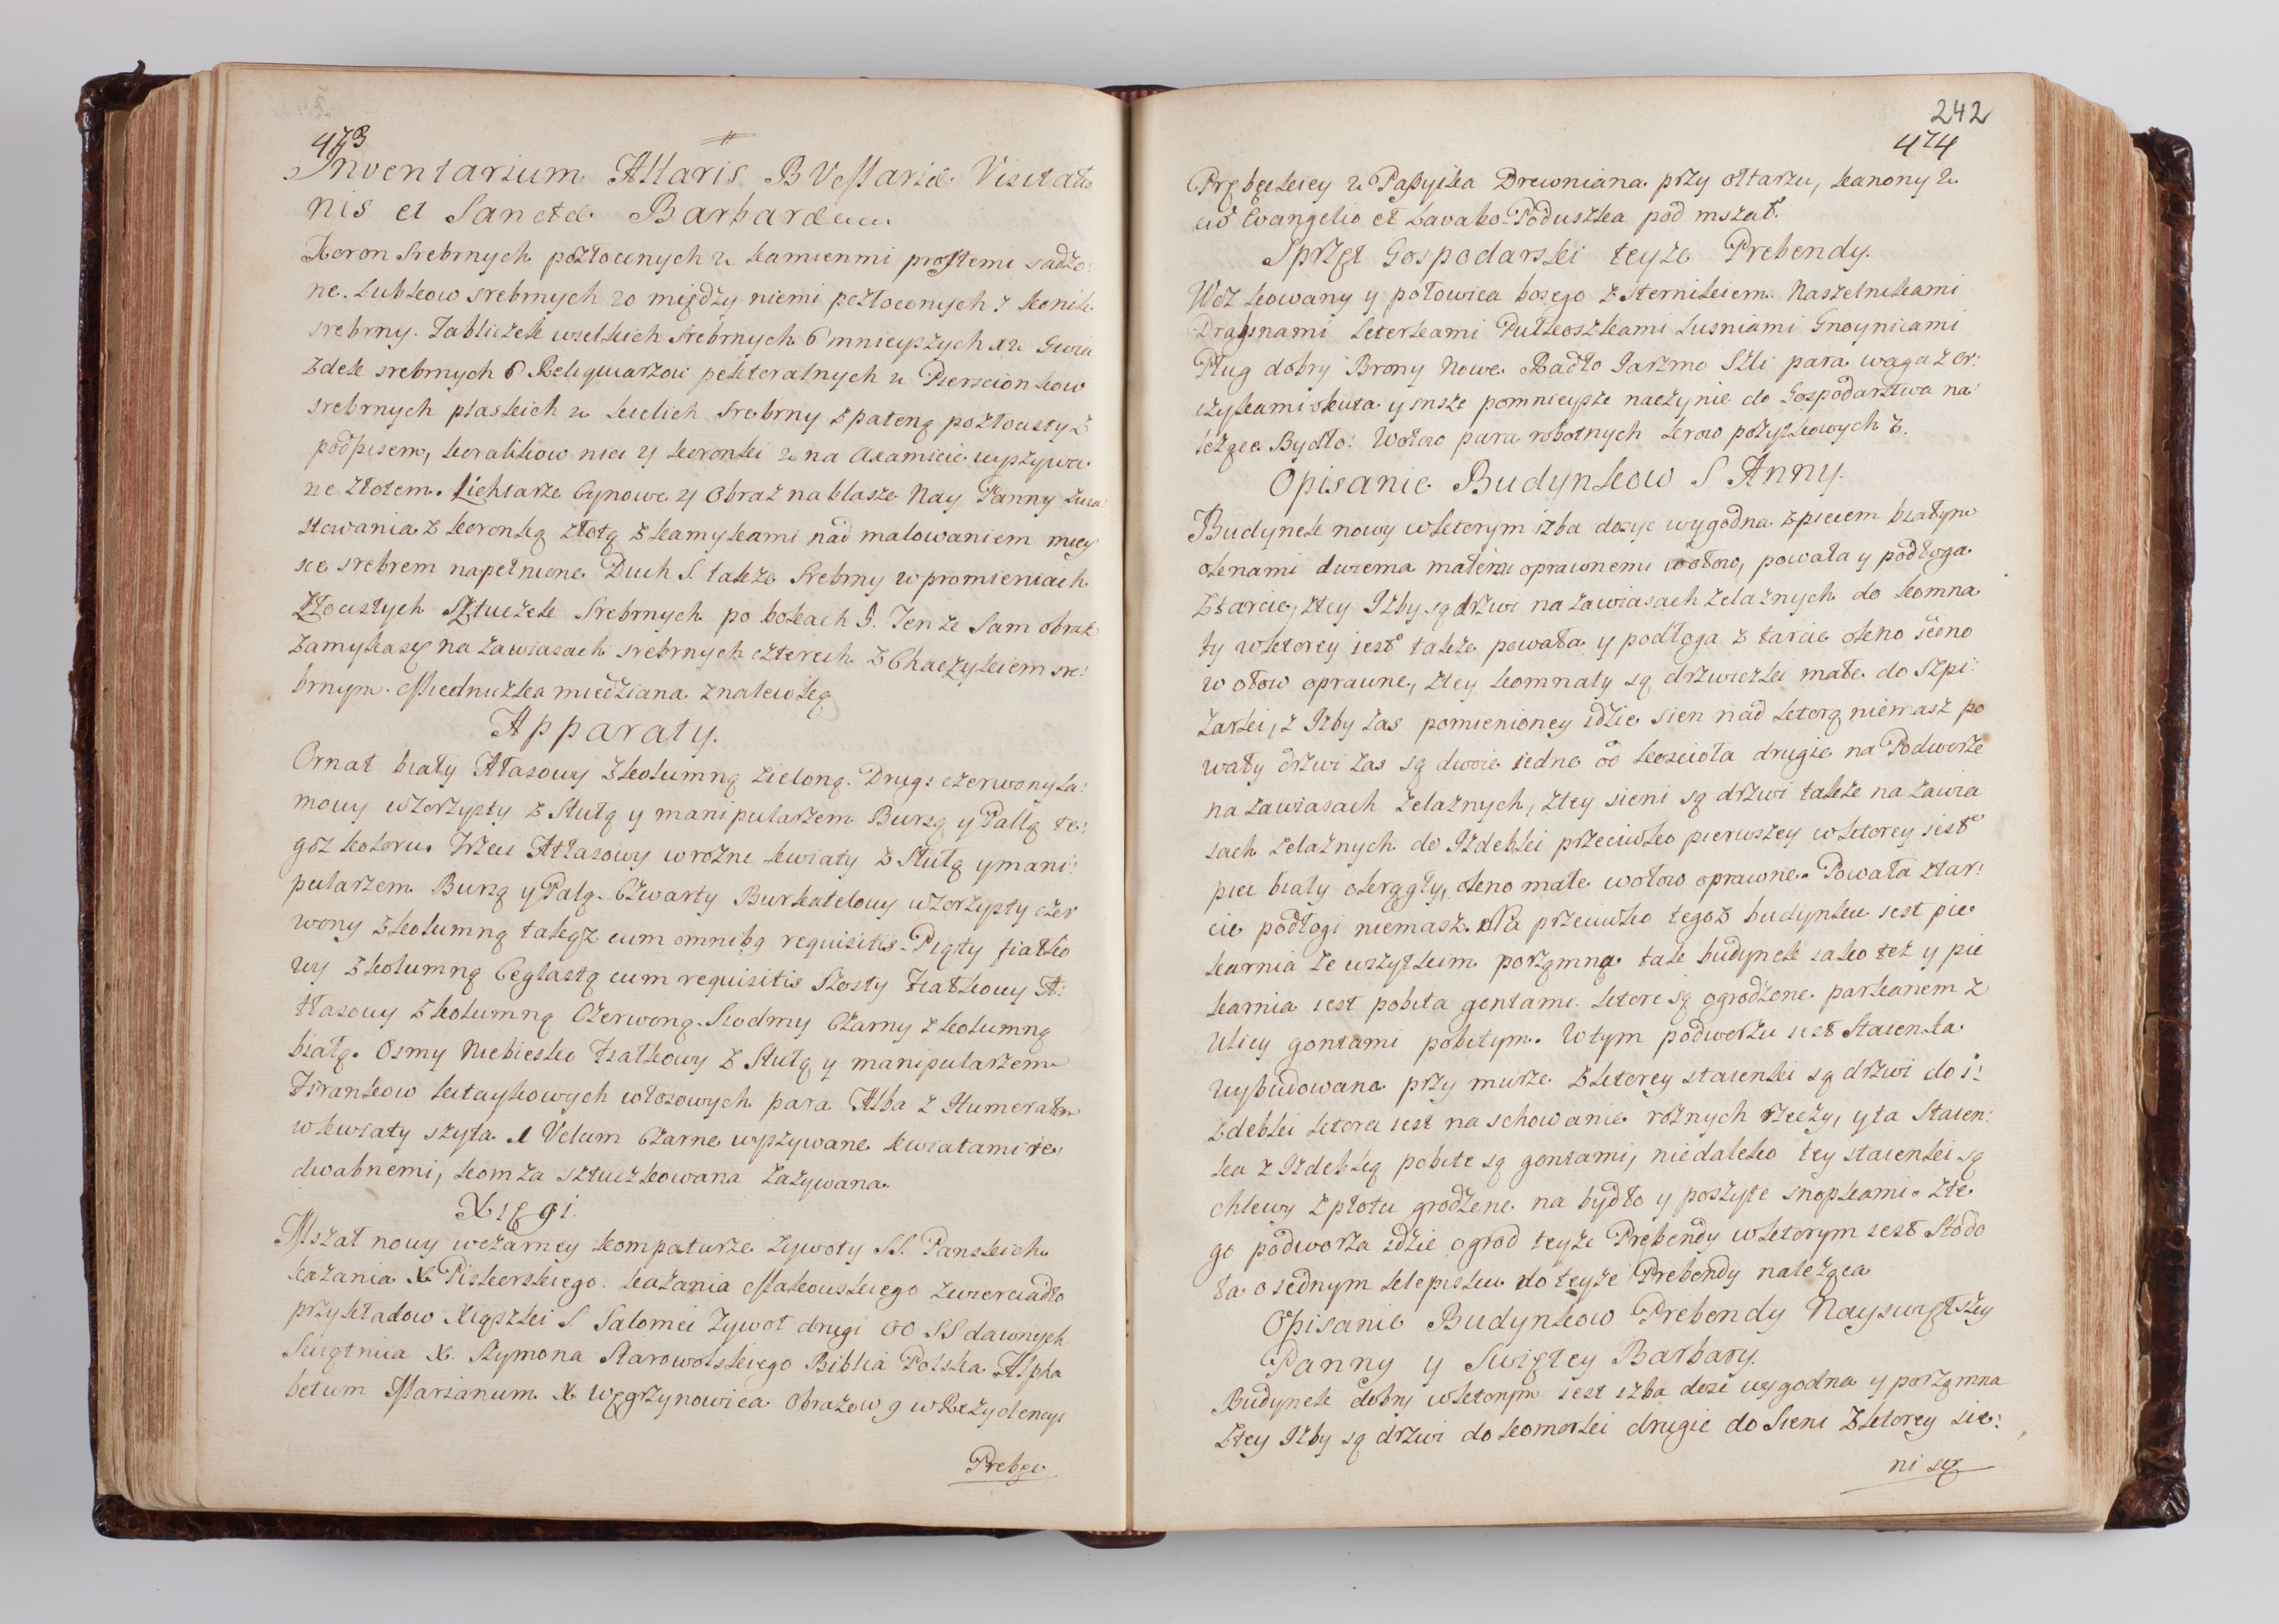 473
Inventarium Altaris B V Mariæ Visitatio
nis et Sanctæ Barbaræ
Koron Srebrnych pozłocenych 2 kamienmi prostemi sadzo:
ne. Lubkow srebrnych 20 między niemi pozłoconych 7 konik
srebrny. Tabliczek wselkich srebrnych 6 mnieyszych 12 Gwia
zdek srebrnych 6 Reliquiarzow pektoralnych 2 Pierscionkow
srebrnych płaskich 2 kielich Srebrny z pateną pozłocisty z
podpisem, koralikow nici 4 koronki 2 na Axamicie wyszywa
ne złotem. Lichtarze Cynowe 4 Obraz na blasze Nay Panny Zwia
stowania z koronką złotą z kamykami nad malowaniem miey
sce srebrem napełnione Duch S. takze Srebrny w promieniach
Złocistych Sztuczek Srebrnych po bokach 9. Tenze Sam obraz
zamykasię na zawiasach srebrnych czterech z Chaczykiem sre:
brnym. Miednuczka miedziana z nalewką
Apparaty.
Ornat biały Atłasowy z kolumną zieloną. Drugi czerwony La:
mowy wzorzysty z Stułą y manipularzem Bursą y Pallą te:
goz koloru. Trzeci Atłasowy w rozne kwiaty z Stułą y mani:
pularzem Bursą y Palą. Czwarty Burkatelowy wzorzysty czer
wony z kolumną takąz cum omnibq requisitis. Piąty fiałko
wy z kolumną Ceglastą cum requisitis Szosty Fiałkowy A:
tłasowy z kolumną Czerwoną. Siodmy Czarny z kolumną
białą. Osmy Niebiesko Fiałkowy z Stułą y manipularzem
Firankow kitaykowych włosowych para Alba z Humerałem
w kwiaty szyta 1 Velum Czarne wyszywane kwiatami ie:
dwabnemi, komza sztuczkowana zazywana.
Xięgi.
Mszał nowy w czarney kompaturze zywoty SS. Panskich
kazania X. Piskorskiego. kazania Makowskiego zwierciadło
przykładow Xiązki S Salomei Zywot drugi OO SS dawnych
Swiętnica X. Szymona Starowolskiego Biblia Polska Alpha
betum Marianum X Węgrzynowica Obrazow 9 w Rezydencyi
Prebę
242
474
Prębęckiey 2 Passyika Drewniana przy ołtarzu, kanony 2
cum Evangelio et Lavabo. Poduszka pod mszał.
Sprzęt Gospodarski teyze Prebendy.
Woz kowany y połowica bosego z sternikiem. Naszelnikami
Drabinami leterkami Pułkoszkami Lusniami Gnoynicami
Pług dobry Brony Nowe Radło Jarzmo Szli para waga z or:
czykami okuta y insze pomnieysze naczynie do Gospodarstwa na:
leżące Bydło: Wołow para robotnych krow pozytkowych 3.
Opisanie Budynkow S Anny.
Budynek nowy wktorym izba dosyc wygodna z piecem białym
oknami dwiema małemi oprawnemi wołow, powała y podłoga
Ztarcic, ztey Izby są drzwi na zawiasach zelaznych do komna
ty wktorey iest takze powała y podłoga z tarcic okno iedno
w ołow oprawne, ztey komnaty są drzwiczki małe do Szpi:
zarki, z Izby zas pomienioney idzie sien nad ktorą niemasz po
wały drzwi zas są dwoie iedne od kosciola drugie na Podworze
na zawiasach zelaznych, ztey sieni są drzwi takze na zawia
sach zelaznych do Izdebki przeciwko pierwszey wktorey iest
piec biały okrągły, okno małe wołow oprawne. Powała ztar:
cic podłogi niemasz. Na przeciwko tegoz budynku iest pie
karnia ze wszytkim porządna tak budynek iako też y pie
karnia iest pobita gontami ktore są ogrodzone parkanem z
Ulicy gontami pobitym. W tym podworzu iest Staienka
wybudowana przy murze z ktorey staienki są drzwi do i:
zdebki ktora iest na schowanie roznych rzeczy, y ta Staien:
ka z Izdebką pobite są gontami, niedaleko tey staienki są
chlewy z płotu grodzene na bydło y poszyte snopkami. zte
go podworza idzie ogrod teyze Prębendy wktorym iest Stodo
ła o iednym klepisku do teyze Prebendy należąca
Opisanie Budynkow Prebendy Nayswiętszey
Panny y Swiętey Barbary.
Budynek dobry wktorym iest izba dosc wygodna y porządna
Ztey Izby są drzwi do komorki drugie do Sieni Zktorey sie:
ni są